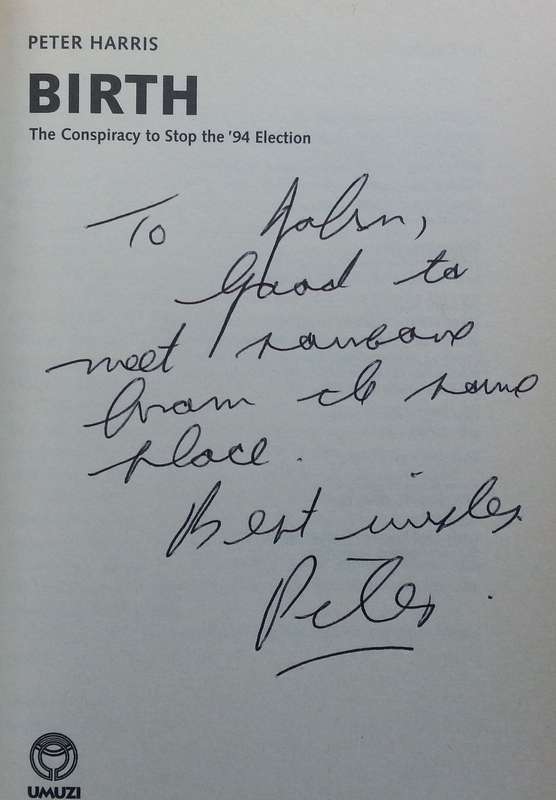 PETER HARRIS
BIRTH
The Conspiracy to Stop the '94 Election
To John,
Good to
meet someone
from the same
place.
Best wishes
Peter.
UMUZI